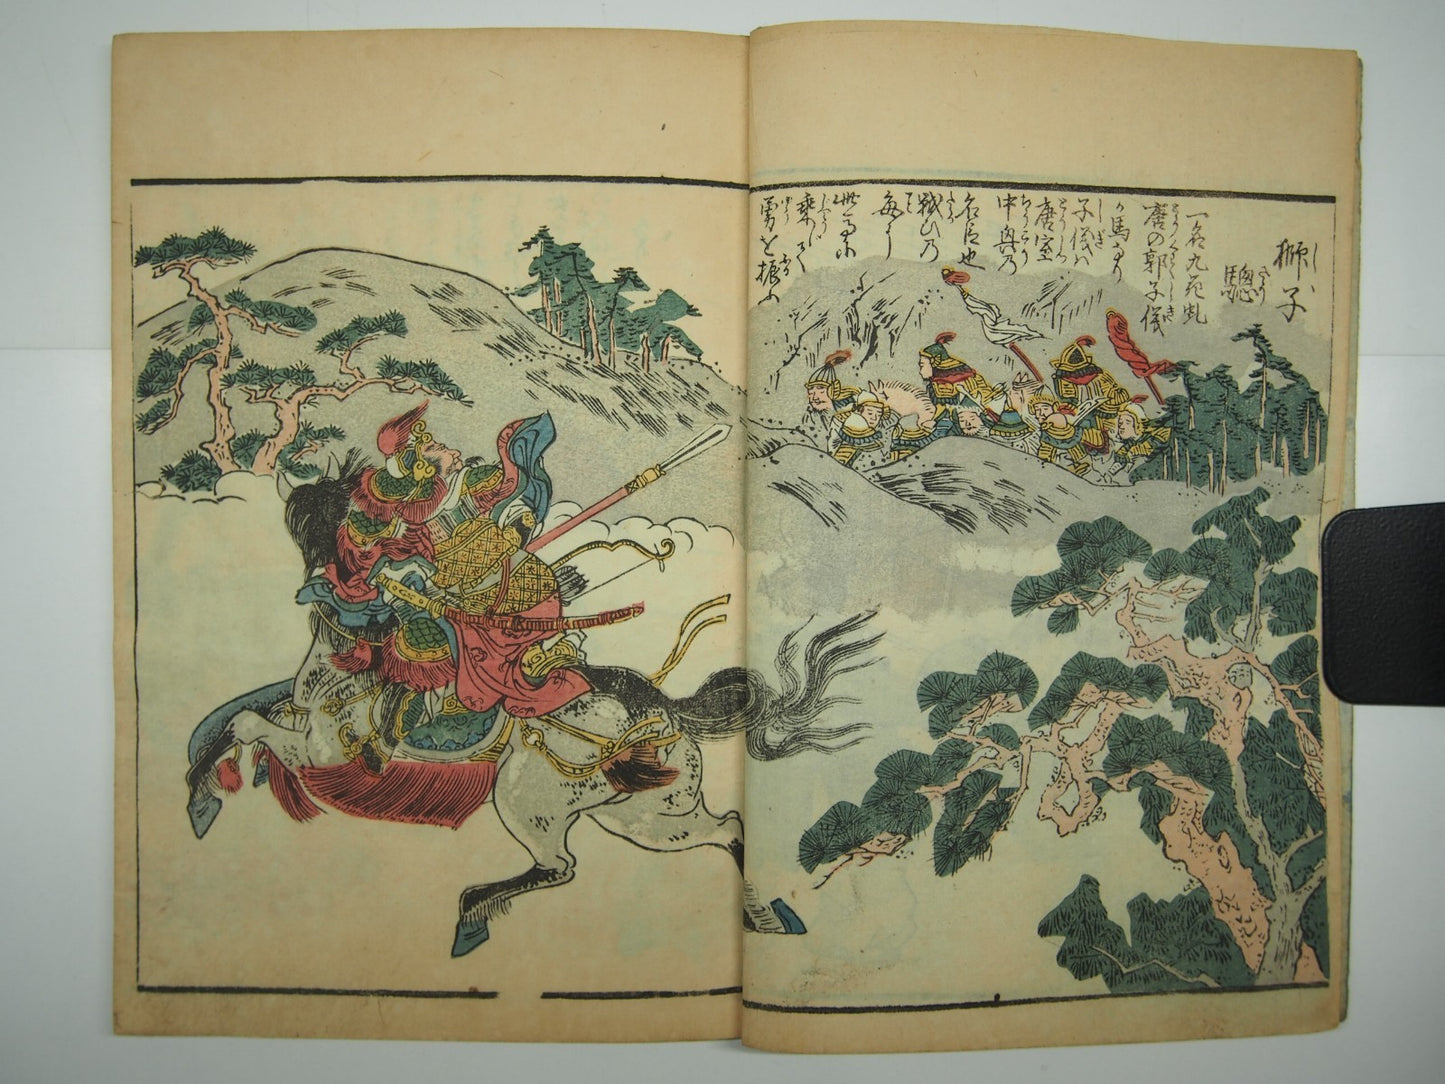 獅子
驄
一名九花虬
唐の郭子儀
が馬なり
子儀ハ
唐室
中興の
名臣也
戦ひの
毎に
此馬に
乗じて
勇を振ふ